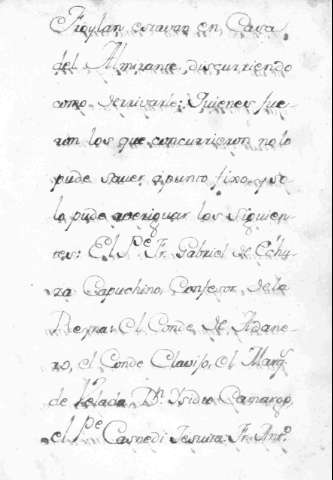 Froylan estavan en Casa
del Almirante discurriendo
como derrivarle: Quienes fue
ron los que concurrieron no lo
pude saver apunto fixo, y solo
lo pude averiguar los siguien
tes: El Pe. Fr. Gabriel de Chiu
za Capuchino, Confesor de la
Reyna: el Conde de Adane
ro, el Conde Clavijo, el Marqs.
de Dn. Ysidro Camargo,
el Pe. Casnedi Jesuita Fr. Anto.